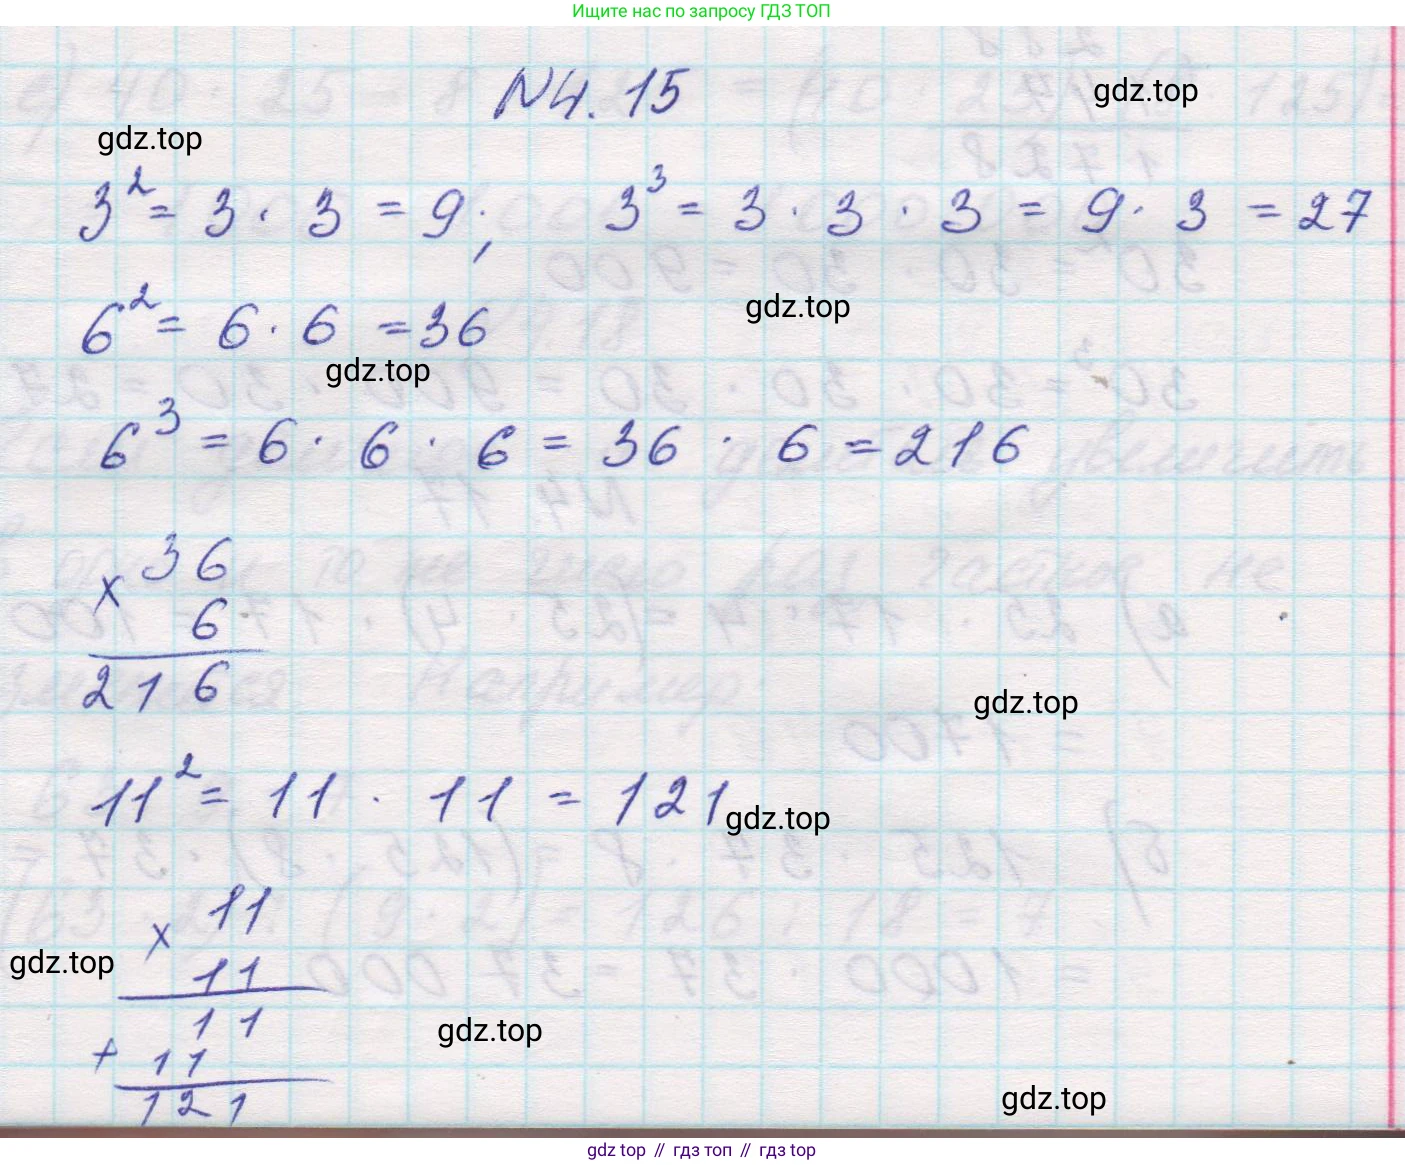 Ищите нас по запросу ГДЗ ТОП
N4.15
gdz.top
gdz.top
3² = 3 · 3 = 9; 3³ = 3 · 3 · 3 = 9 · 3 = 27
gdz.top
6² = 6 · 6 = 36
gdz.top
6³ = 6 · 6 · 6 = 36 · 6 = 216
x 36
6
216
gdz.top
11² = 11 · 11 = 121
gdz.top
x 11
11
gdz.top
11
gdz.top
+ 11
121
gdz.top
gdz top // гдз топ // gdz top